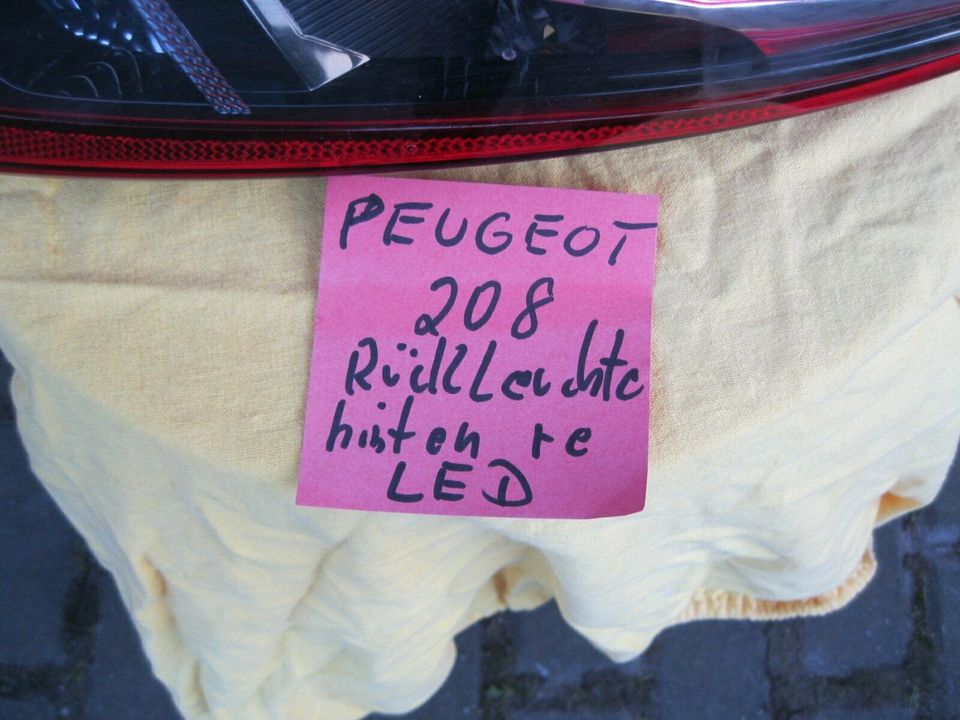 PEUGEOT
208
Rückleuchte
hinten re
LED